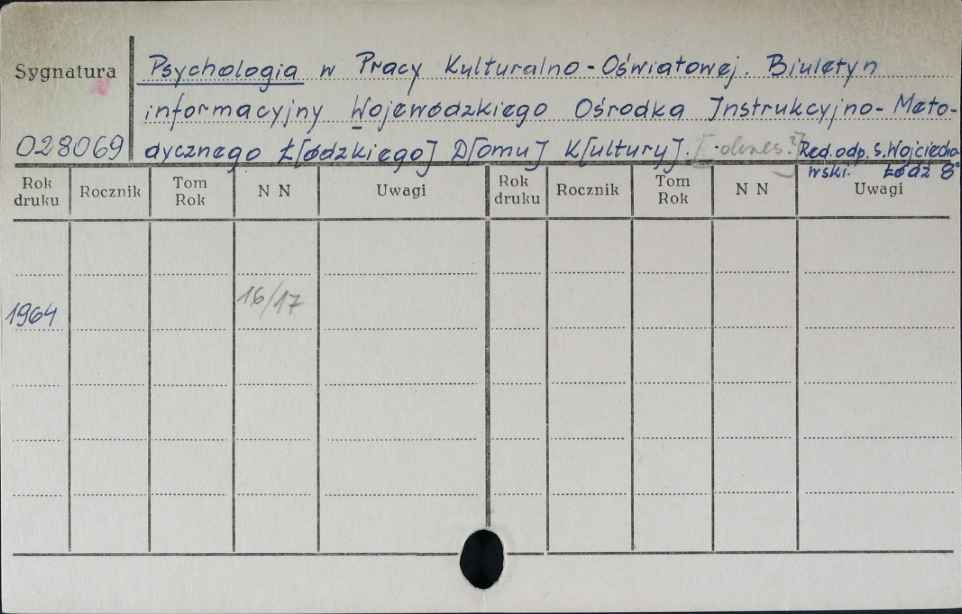 Sygnatura Psychologia w Pracy Kulturalno-Oświatowej. Biuletyn
informacyjny Wojewódzkiego Ośrodka Instrukcyjno-Meto-
028069 dycznego Ł[ódzkiego] D[omu] K[ultury]. Red. odp. S. Wojciecho-
wski. Łódź 8°
Rok druku Rocznik Tom Rok N N Uwagi Rok druku Rocznik Tom Rok N N Uwagi
1964 16/17